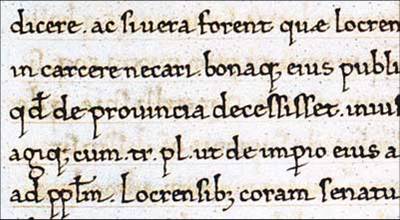 dicere. ac si uera forent quæ locren
in carcere necari. bonaq; eius publi
qd̄ de prouincia decessisset. iniuss
agiq; cum. tr̄. pl̄. ut de imꝑio eius a
ad pp̄lm̄. Locrensib; coram senatu